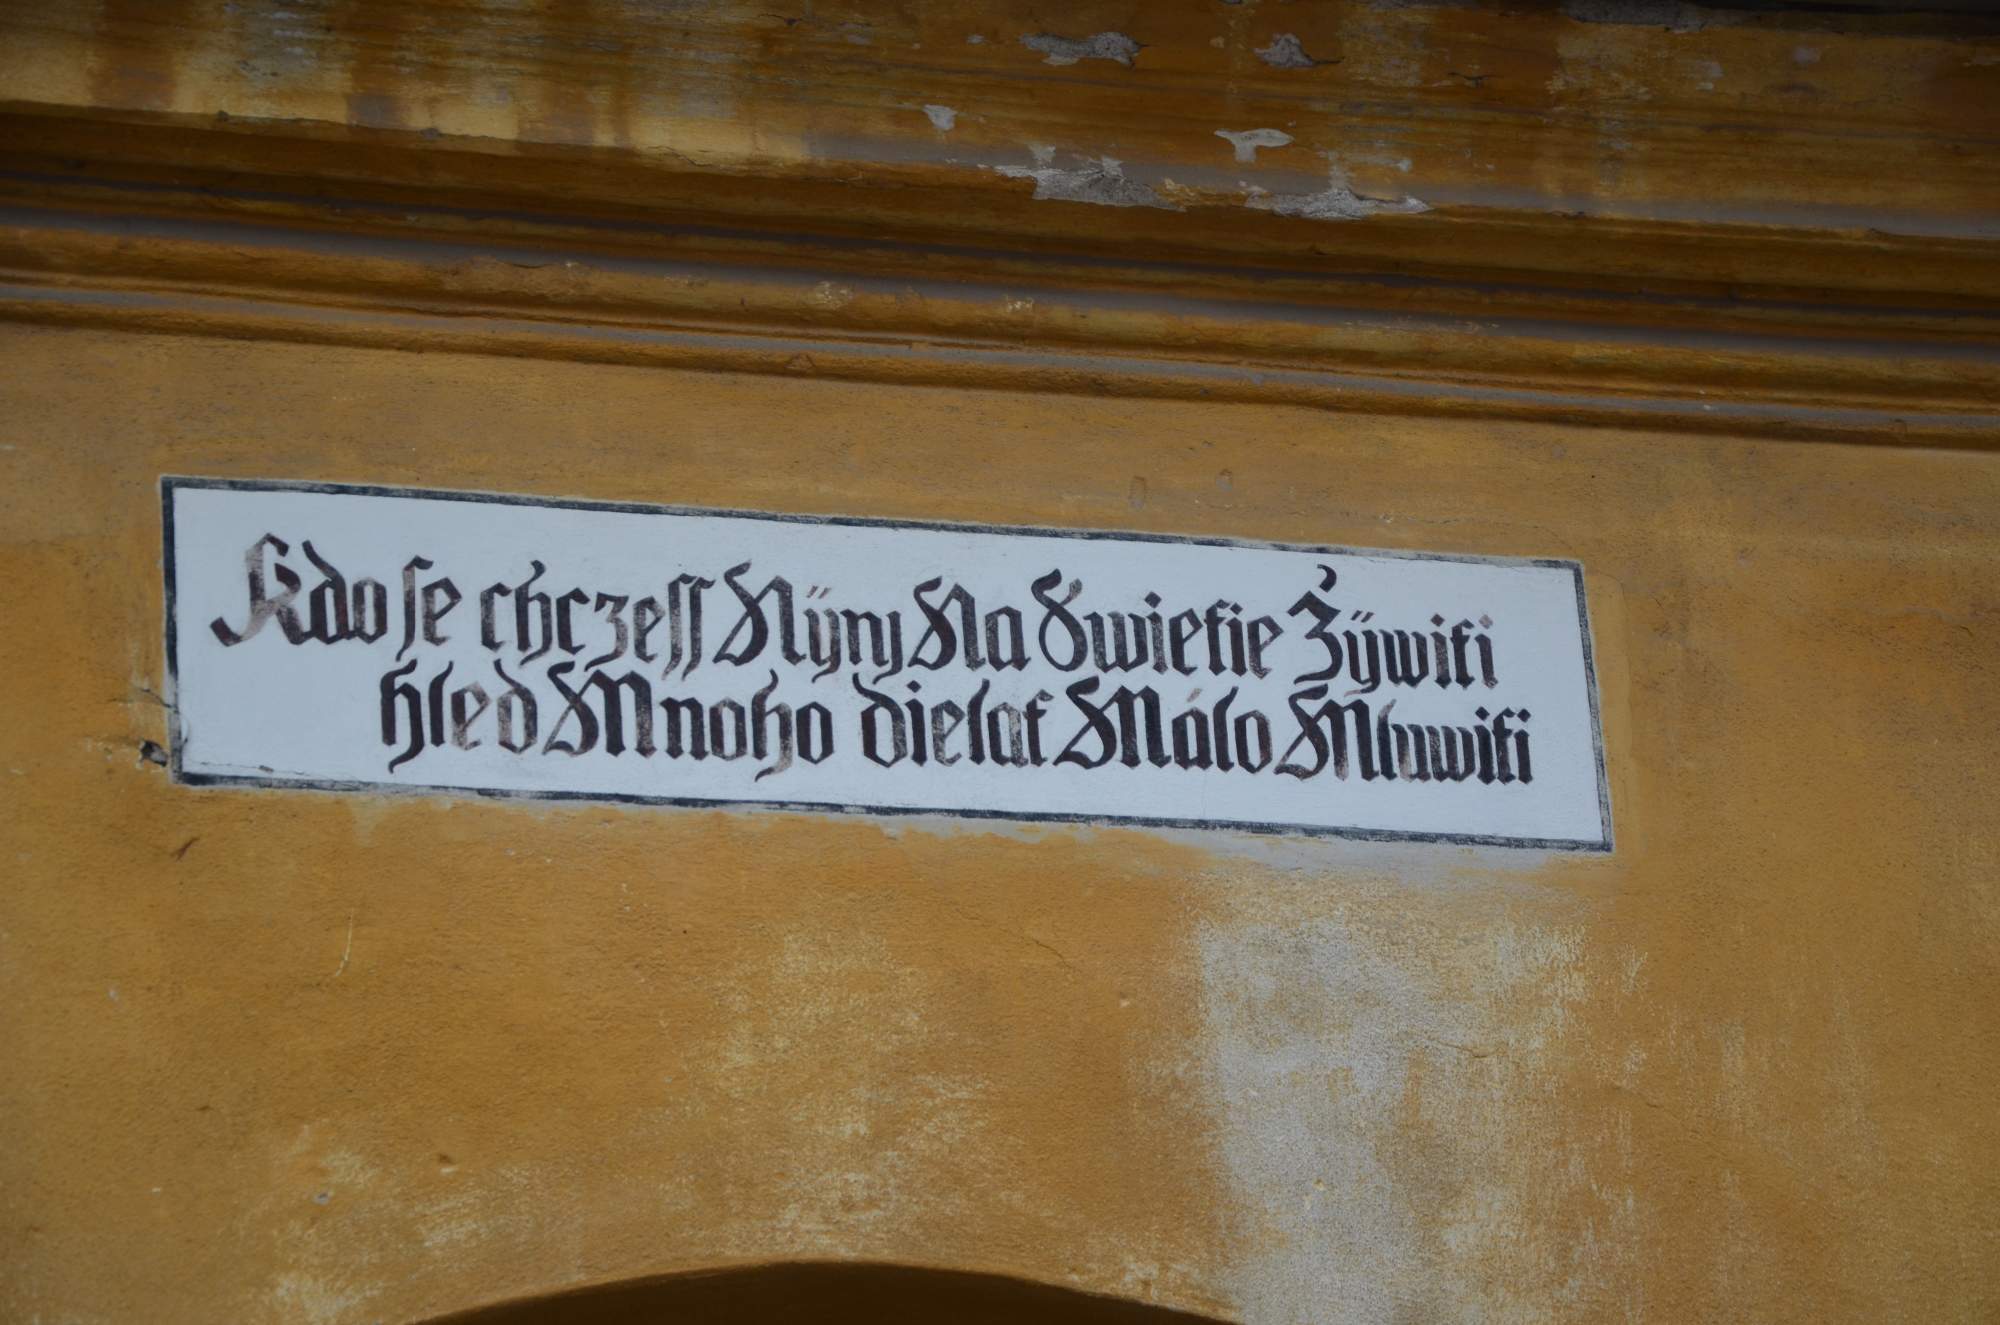 Kdo se chczeſſ Nÿnj Na Swietie Žÿwiti
hled Mnoho dielat Málo Mluwiti